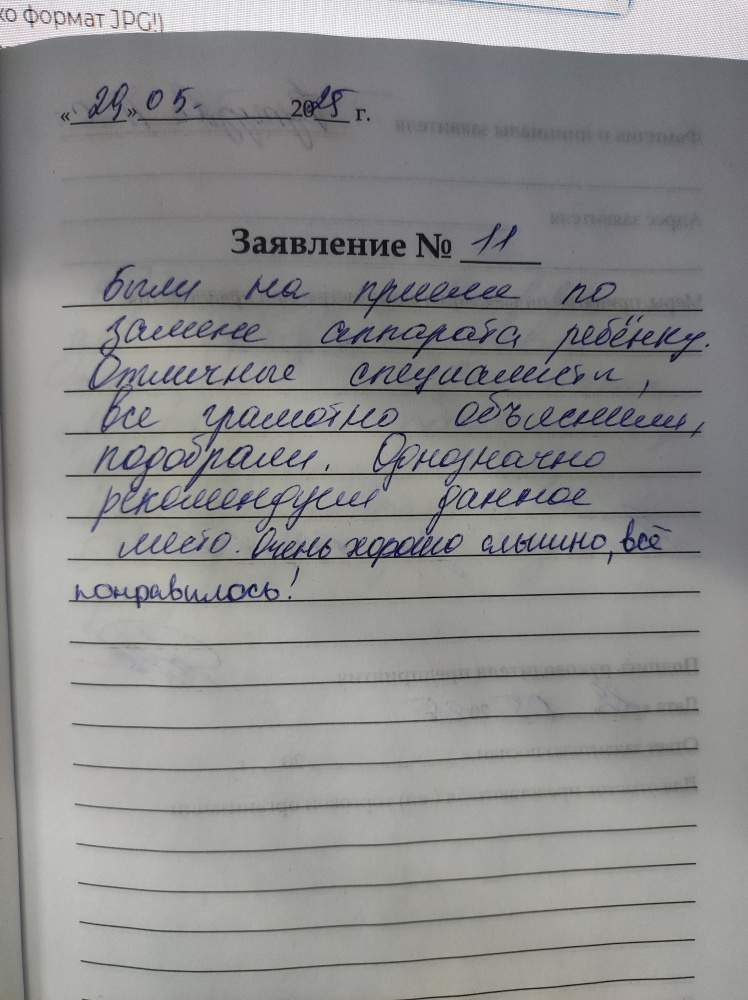 ко формат JPG!)
«29» 05. 2025 г.
Заявление № 11
Были на приеме по
замене аппарата ребёнку.
Отличные специалисты,
все грамотно объяснили,
подобрали. Однозначно
рекомендуем данное
место. Очень хорошо слышно, всё
понравилось!